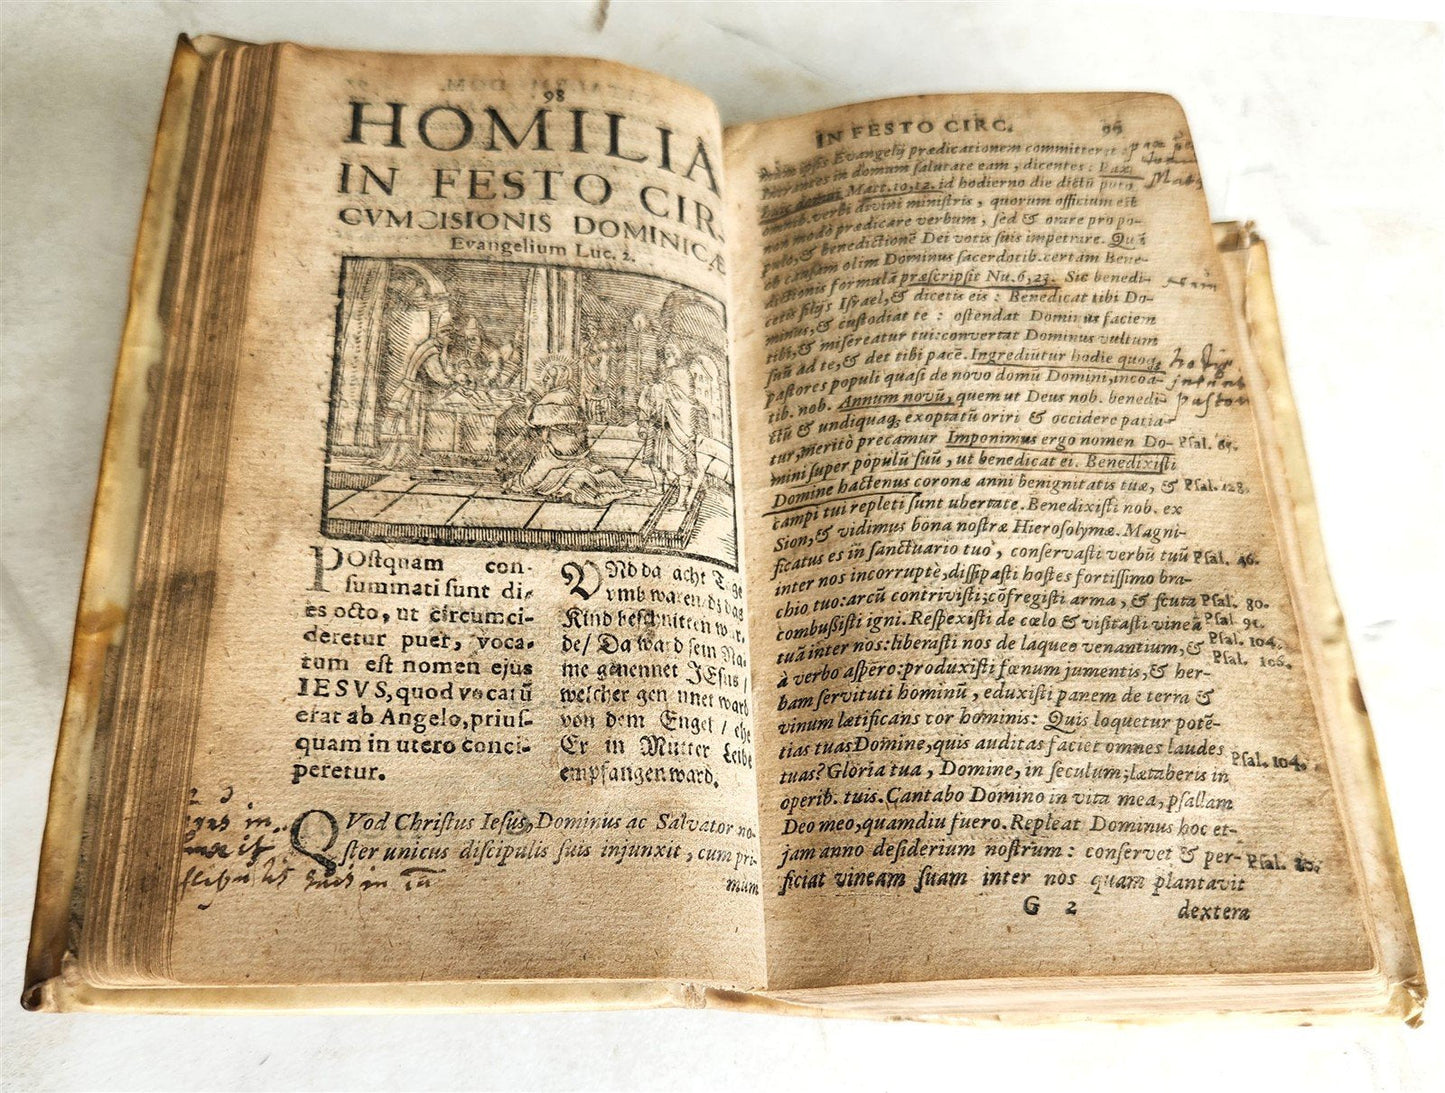 98
HOMILIA
IN FESTO CIR-
CVMCISIONIS DOMINICÆ
Evangelium Luc. 2.
POſtquam con-
ſummati ſunt di-
es octo, ut circumci-
deretur puer, voca-
tum eſt nomen ejus
IESVS, quod vocatū
erat ab Angelo, priuſ-
quam in utero conci-
peretur.
VNd da acht Tage
vmb waren / dz das
Kind beſchnitten wur-
de / Da ward ſein Na-
me genennet JEſus /
welcher genennet ward
von dem Engel / ehe
Er in Mutter Leibe
empfangen ward.
QVod Chriſtus Ieſus, Dominus ac Salvator no-
ſter unicus diſcipulis ſuis injunxit, cum pri-
mum
IN FESTO CIRC. 99
ipſis Evangelij prædicationem committeret:
Intrantes in domum ſalutate eam, dicentes: Pax
huic domui Matt. 10, 12. id hodierno die dictū puto
omnib. verbi divini miniſtris, quorum officium eſt
non modò prædicare verbum, ſed & orare pro po-
pulo, & benedictionē Dei votis ſuis impetrare. Quā
ob cauſam olim Dominus ſacerdotib. certam Bene-
dictionis formulā præſcripſit Nu. 6, 23. Sic benedi-
cetis filijs Iſrael, & dicetis eis: Benedicat tibi Do-
minus, & cuſtodiat te: oſtendat Dominus faciem
tibi, & miſereatur tui: convertat Dominus vultum
ſuū ad te, & det tibi pacē. Ingrediuntur hodie quoq;
paſtores populi quaſi de novo domū Domini, incoa-
tib. nob. Annum novū, quem ut Deus nob. benedi-
ctū & undiquaq; exoptatū oriri & occidere patia-
tur, meritò precamur Imponimus ergo nomen Do- Pſal. 65.
mini ſuper populū ſuū, ut benedicat ei. Benedixiſti
Domine hactenus coronæ anni benignitatis tuæ, & Pſal. 128.
campi tui repleti ſunt ubertate. Benedixiſti nob. ex
Sion, & vidimus bona noſtræ Hieroſolymæ. Magni-
ficatus es in ſanctuario tuo, conſervaſti verbū tuū Pſal. 46.
inter nos incorruptè, diſſipaſti hoſtes fortiſſimo bra-
chio tuo: arcū contriviſti; cōfregiſti arma, & ſcuta Pſal. 80.
combuſſiſti igni. Reſpexiſti de cœlo & viſitaſti vineā Pſal. 91.
tuā inter nos: liberaſti nos de laqueo venantium, & Pſal. 104.
à verbo aſpero: produxiſti fœnum jumentis, & her- Pſal. 106.
bam ſervituti hominū, eduxiſti panem de terra &
vinum lætificans cor hominis: Quis loquetur potē-
tias tuas Domine, quis auditas faciet omnes laudes
tuas? Gloria tua, Domine, in ſeculum; lætaberis in Pſal. 104.
operib. tuis. Cantabo Domino in vita mea, pſallam
Deo meo, quamdiu fuero. Repleat Dominus hoc et-
jam anno deſiderium noſtrum: conſervet & per- Pſal. 80.
ficiat vineam ſuam inter nos quam plantavit
G 2 dextera